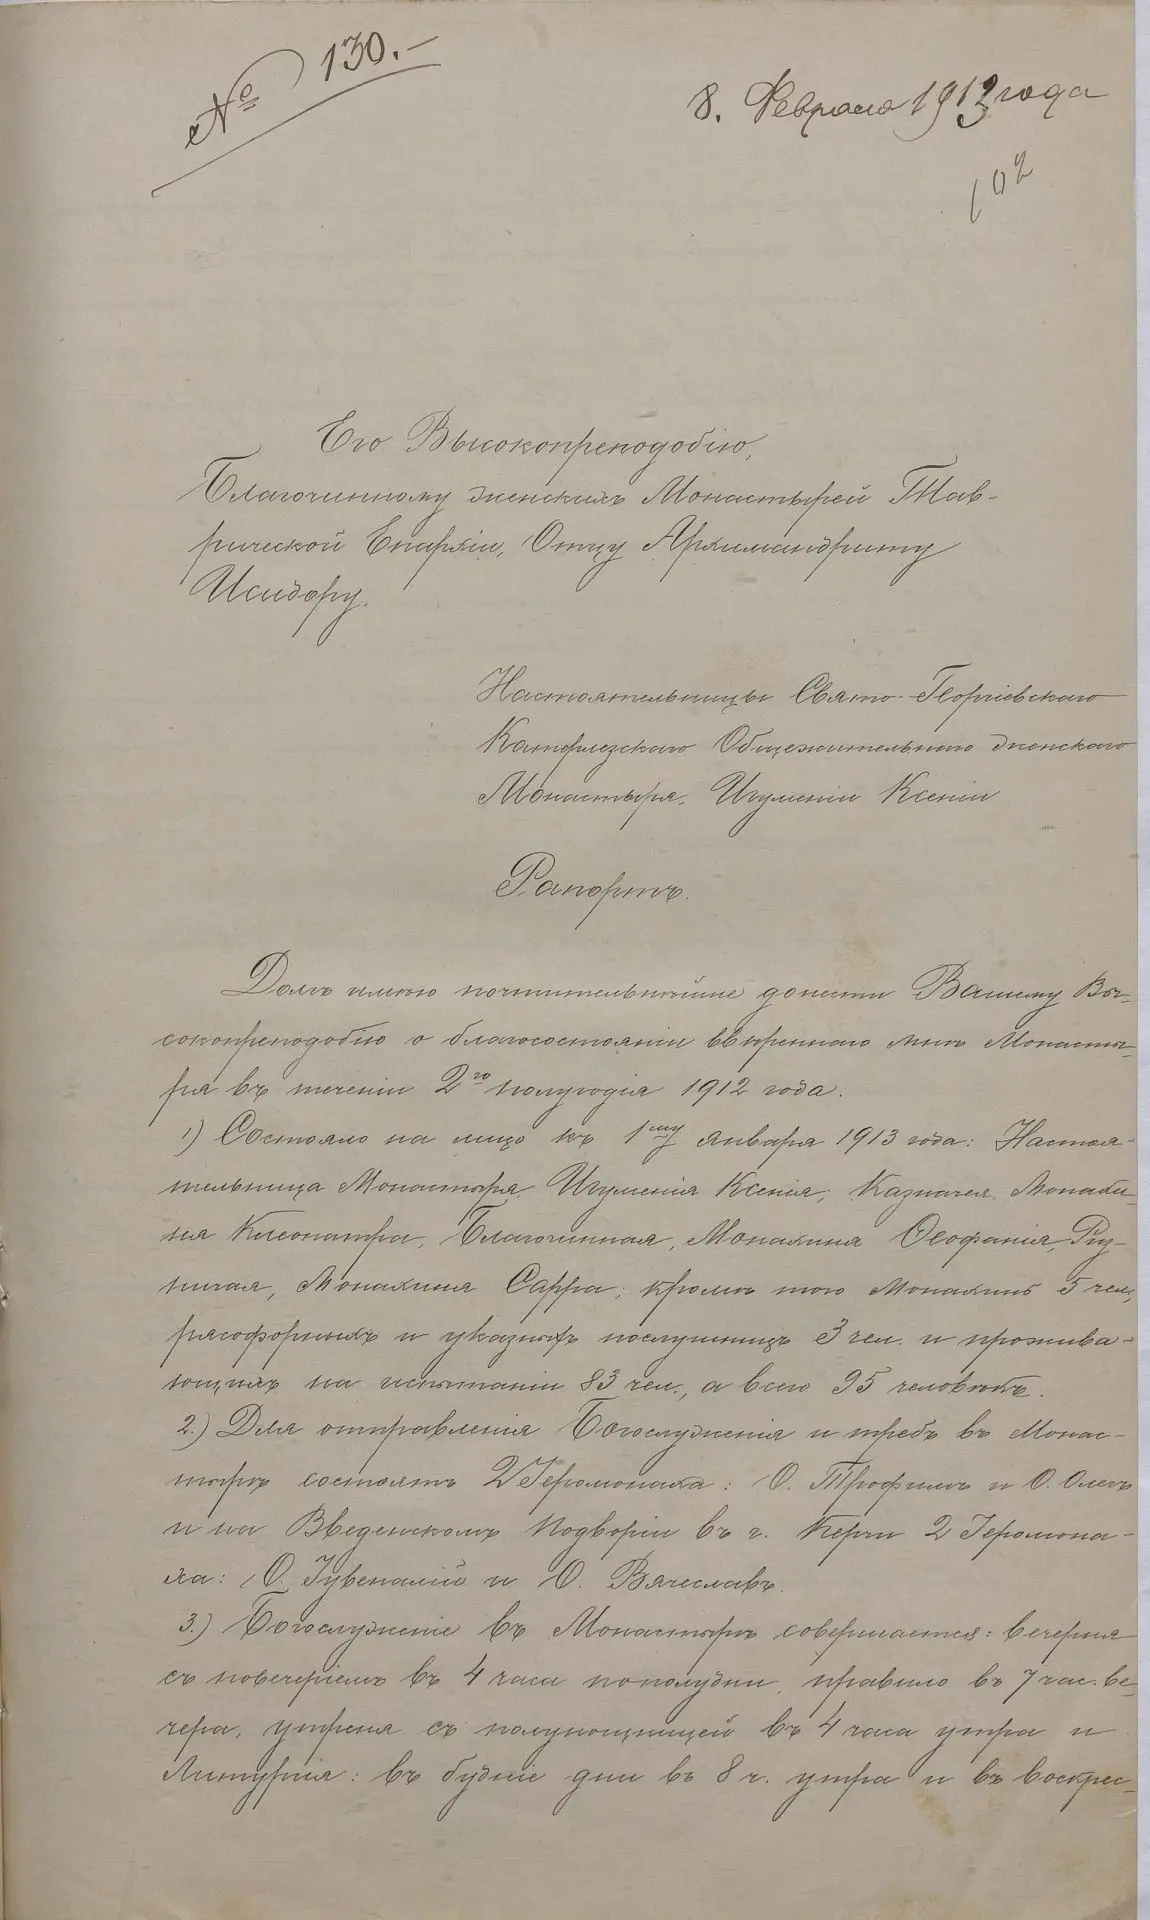 № 130.—
8. Февраля 1913 года
102
Его Высокопреподобію,
Благочинному женскихъ Монастырей Тав-
рической Епархіи, Отцу Архимандриту
Исидору.
Настоятельницы Свято-Георгіевскаго
Катерлезскаго Общежительнаго женскаго
Монастыря, Игуменіи Ксеніи
Рапортъ.
Долгъ имѣю почтительнѣйше донести Вашему Вы-
сокопреподобію о благосостояніи ввѣреннаго мнѣ Монасты-
ря въ теченіи 2го полугодія 1912 года.
1) Состояло на лицо къ 1му января 1913 года: Настоя-
тельница Монастыря, Игуменія Ксенія; Казначея, Монахи-
ня Клеопатра, Благочинная, Монахиня Ѳеофанія, Риз-
ничая, Монахиня Сарра; кромѣ того Монахинь 5 чел.,
рясофорныхъ и указныхъ послушницъ 3 чел. и прожива-
ющихъ на испытаніи 83 чел., а всего 95 человѣкъ.
2.) Для отправленія Богослуженія и требъ въ Монас-
тырѣ состоятъ 2 Іеромонаха: О. Трофимъ и О. Олегъ
и на Введенскомъ Подворіи въ г. Керчи 2 Іеромона-
ха: О. Іувеналій и О. Вячеславъ.
3.) Богослуженіе въ Монастырѣ совершается: вечерня
съ повечеріемъ въ 4 часа пополудни, правило въ 7 час. ве-
чера, утреня съ полунощницей въ 4 часа утра и
Литургія: въ будніе дни въ 8 ч. утра и въ воскрес-